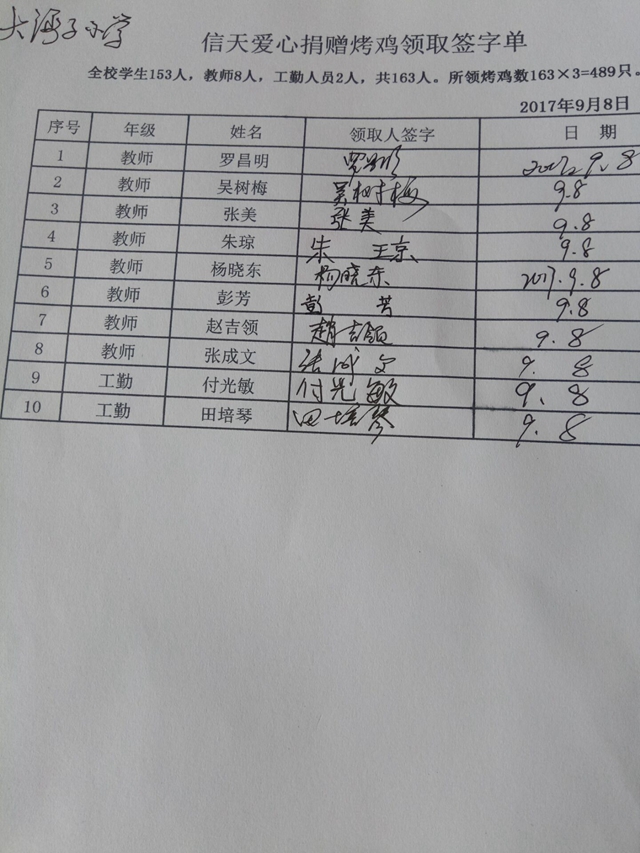 大湾子小学
信天爱心捐赠烤鸡领取签字单
全校学生153人，教师8人，工勤人员2人，共163人。所领烤鸡数163×3=489只。
2017年9月8日
序号 年级 姓名 领取人签字 日 期
1 教师 罗昌明 罗昌明 2017.9.8
2 教师 吴树梅 吴树梅 9.8
3 教师 张美 张美 9.8
4 教师 朱琼 朱琼 9.8
5 教师 杨晓东 杨晓东 2017.9.8
6 教师 彭芳 彭芳 9.8
7 教师 赵吉领 趙吉领 9.8
8 教师 张成文 张成文 9.8
9 工勤 付光敏 付光敏 9.8
10 工勤 田培琴 田培琴 9.8